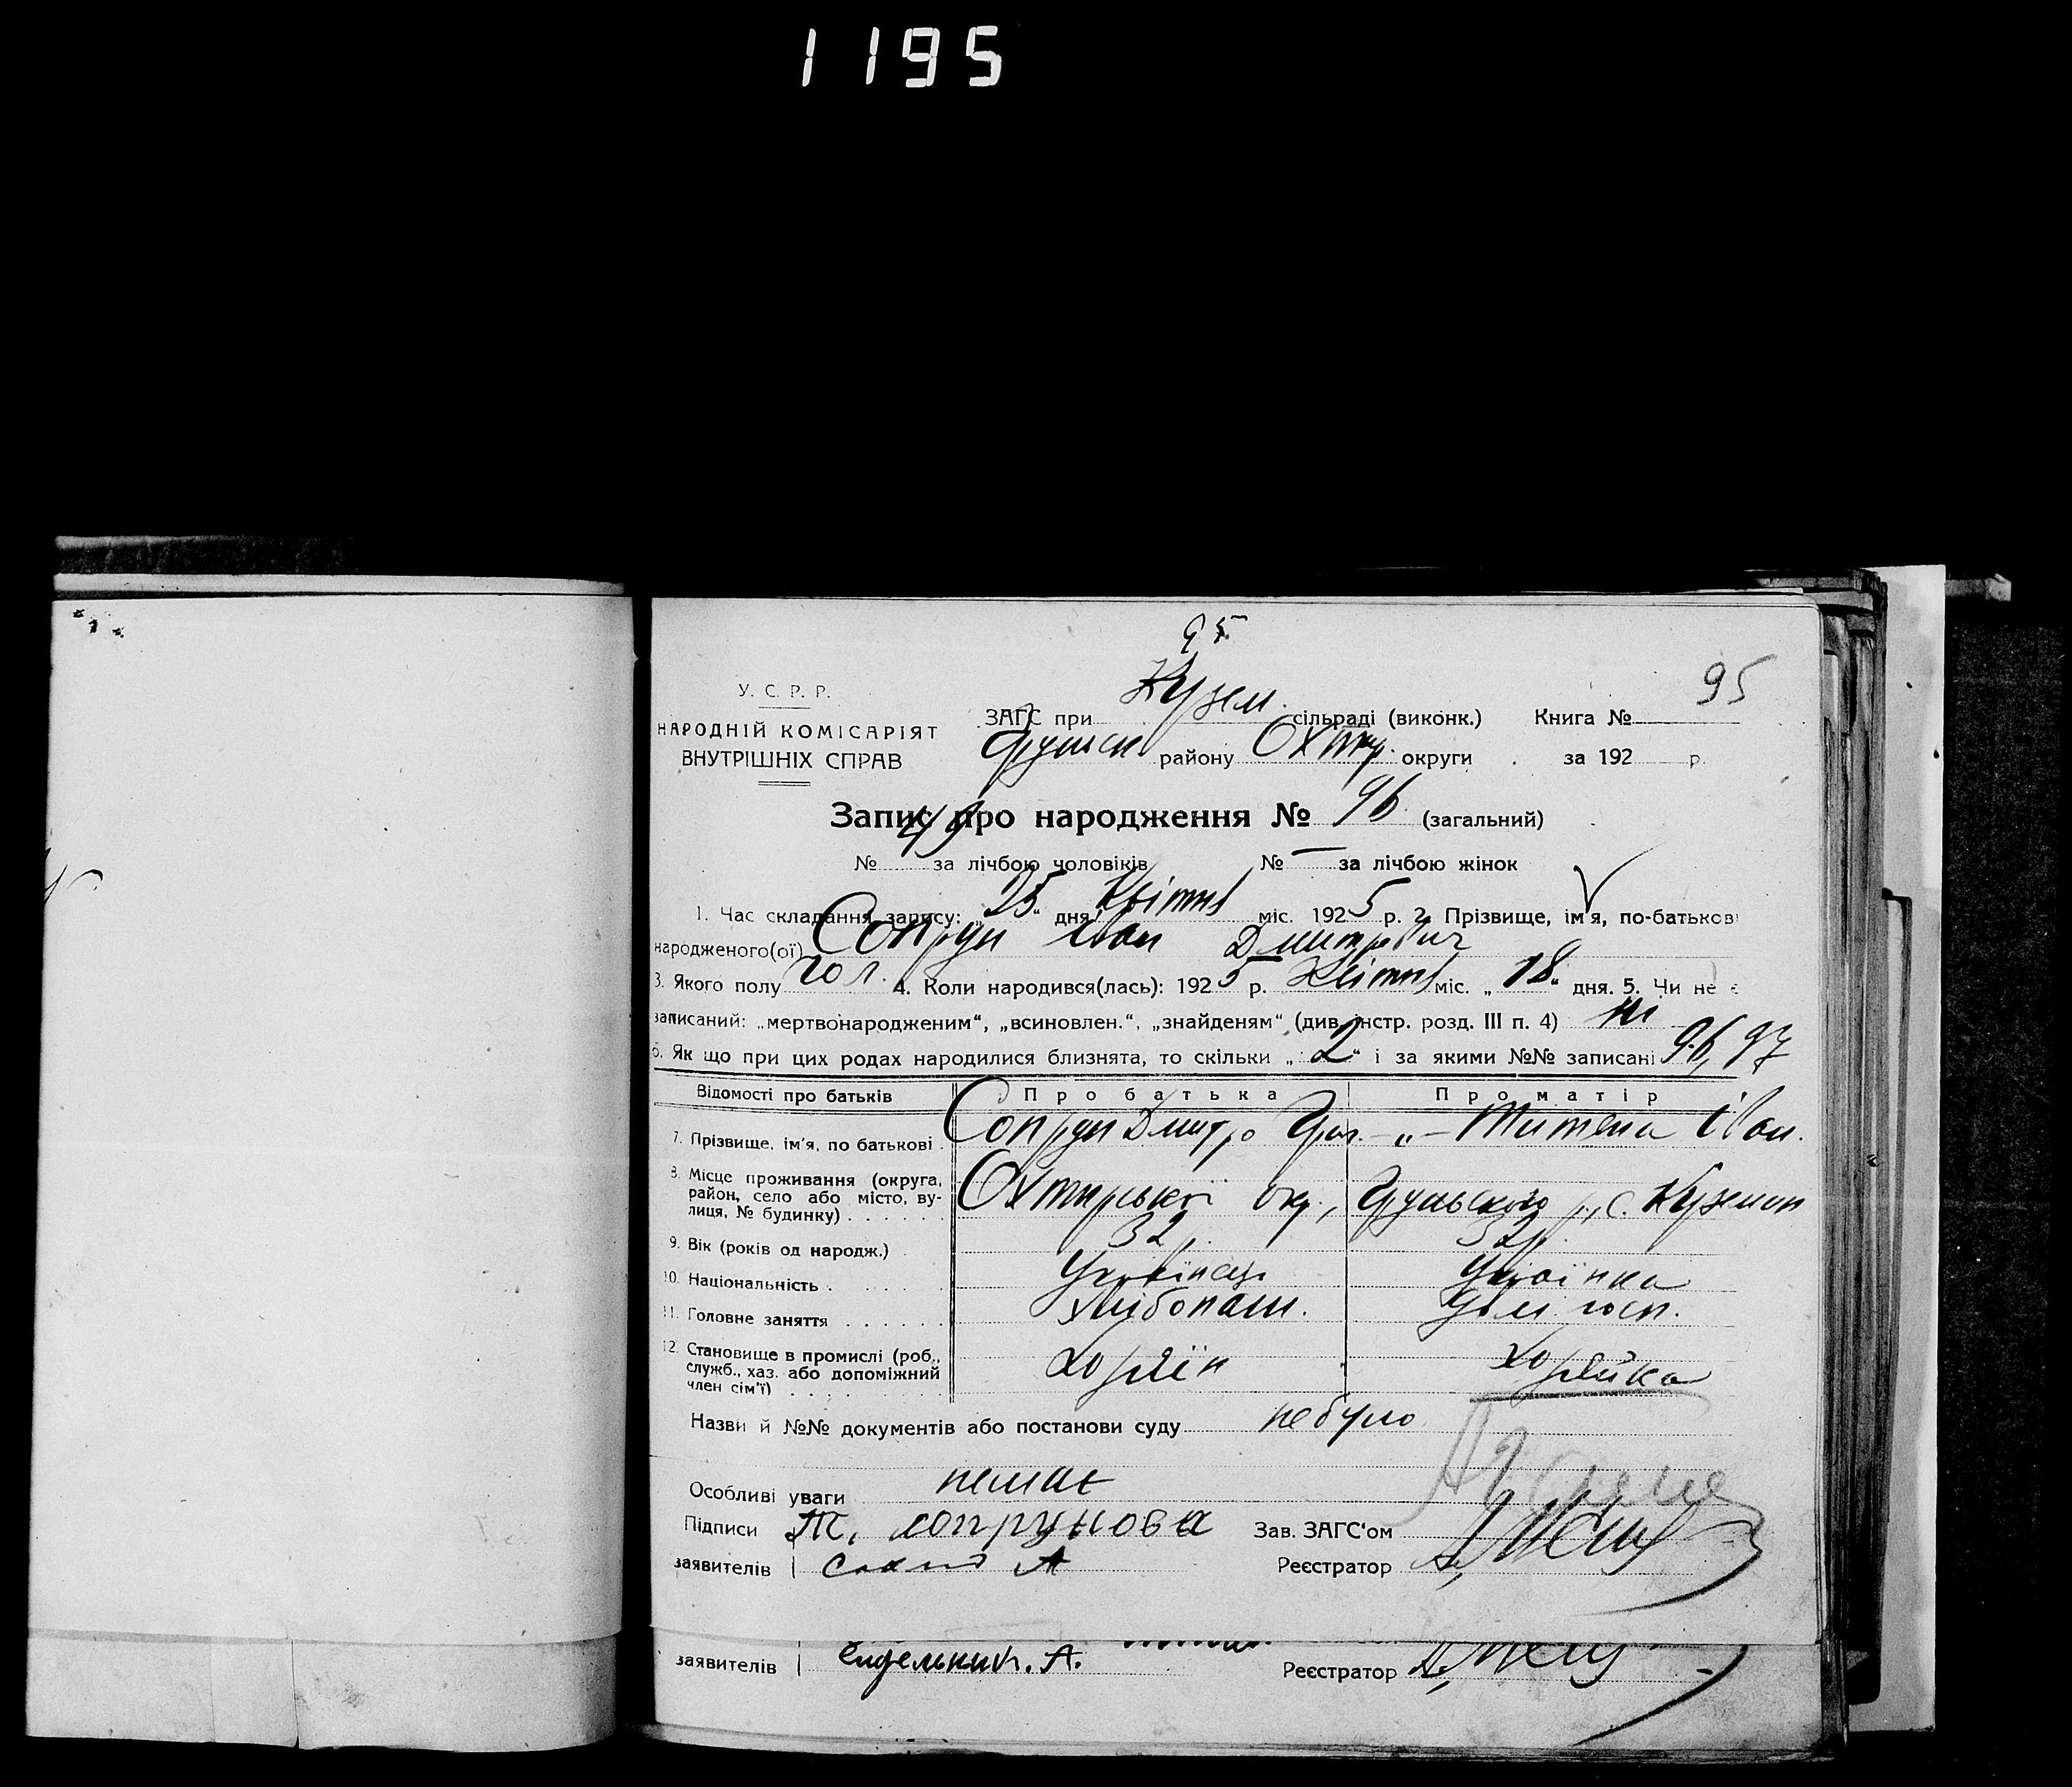 1195
95
95
У. С. Р. Р.
НАРОДНІЙ КОМІСАРІЯТ
ВНУТРІШНІХ СПРАВ
ЗАГС при Кузем. сільраді (виконк.) Книга №
Грунськ району Охтир. округи за 192 р.
Запис про народження № 96 (загальний)
№ 49 за лічбою чоловіків № — за лічбою жінок
1. Час складання запису: „25“ дня Квітня міс. 1925 р. 2. Прізвище, ім'я, по-батькові
народженого(ої) Сопрун Іван Дмитрович
3. Якого полу чол. 4. Коли народився(лась): 1925 р. Квітня міс. „18“ дня. 5. Чи не є
записаний: „мертвонародженим“, „всиновлен.“, „знайденям“ (див. інстр. розд. III п. 4) ні
6. Як що при цих родах народилися близнята, то скільки „2“ і за якими №№ записані 96, 97
Відомості про батьків Про батька Про матір
7. Прізвище, ім'я, по батькові Сопрун Дмитро Григ. —„— Титяна Іван.
8. Місце проживання (округа, район, село або місто, вулиця, № будинку) Охтирської окр., Грунського р., с. Куземин
9. Вік (років од народж.) 32 р. 32 р.
10. Національність Українець Українка
11. Головне заняття Хлібопаш. Дом. госп.
12. Становище в промислі (роб., служб., хаз. або допоміжний член сім'ї) Хозяїн Хозяйка
Назви й №№ документів або постанови суду не було
Особливі уваги немає
Підписи Т. сопрунова Зав. ЗАГС'ом
заявителів А Реєстратор
заявителів А. Реєстратор